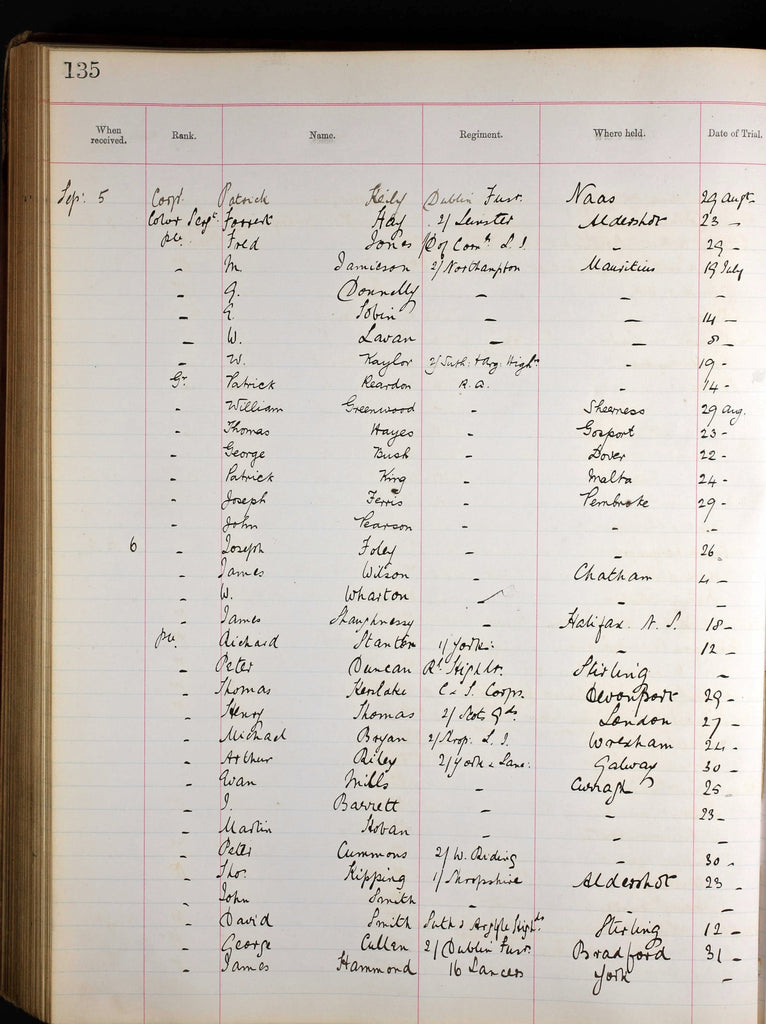 135
When received. Rank. Name. Regiment. Where held. Date of Trial.
Sep. 5 Corpl. Patrick Keily Dublin Fus. Naas 29 Augt.
Color Sergt. Forrest Hay 2/ Leinster Aldershot 23 -
Pte. Fred Jones D. of Corn. L. I. - 29 -
- M. Jamieson 2/ Northampton Mauritius 19 July
- G. Donnelly - - -
- E. Tobin - - 14 -
- W. Lavan - - 8 -
- W. Kaylor 2/ Suth: & Arg: High. - 19 -
Gr. Patrick Reardon R. A. - 14 -
- William Greenwood - Sheerness 29 Aug.
- Thomas Hayes - Gosport 23 -
- George Bush - Dover 22 -
- Patrick King - Malta 24 -
- Joseph Ferris - Pembroke 29 -
- John Pearson - - -
6 - Joseph Foley - - 26
- James Wilson - Chatham 4 -
- W. Wharton - - -
- James Shaughnessy Halifax. N. S. 18 -
Pte. Richard Stanton 1/ York: - 12 -
- Peter Duncan Rl. Highdrs. Stirling -
- Thomas Kerslake C & T. Corps. Devonport 29 -
- Henry Thomas 2/ Scots Gds. London 27 -
- Michael Bryan 2/ Shrop. L. I. Wrexham 24 -
- Arthur Riley 2/ York & Lanc: Galway 30 -
- Evan Mills - Curragh 25 -
- J. Barrett - - 23 -
- Martin Hoban - - -
- Peter Cummons 2/ W. Riding - 30 -
- Tho. Kipping 1/ Shropshire Aldershot 23 -
- John Smith - -
- David Smith Suth & Argyle Highdrs. Stirling 12 -
- George Cullen 2/ Dublin Fus. Bradford 31 -
- James Hammond 16 Lancers York -